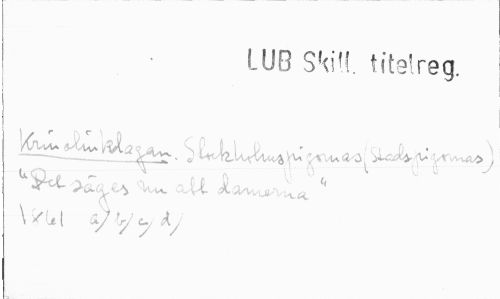 LUB Skill. titelreg.
Krinolinklagan. Stockholmspigornas (Stadspigornas)
"Det säges nu att damerna"
1861 a/ b/ c/ d/